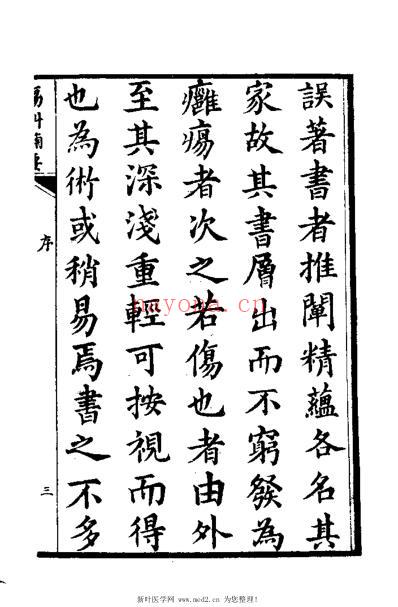 誤著書者推闡精蘊各名其
家故其書層出而不窮發為
癰瘍者次之若傷也者由外
至其深淺重輕可按視而得
也為術或稍易焉書之不多
序
三
nayona.cn
新叶医学网 www.med2.cn 为您整理!